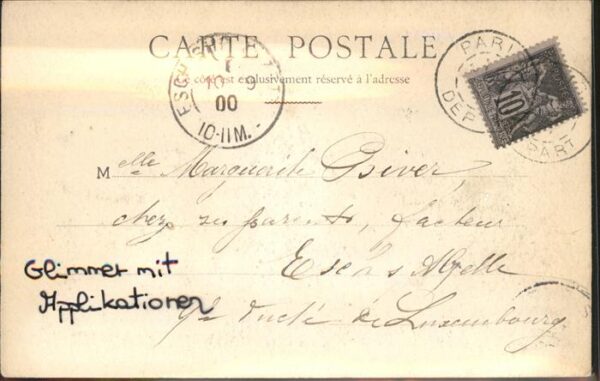 CARTE POSTALE
Ce côté est exclusivement réservé à l'adresse
10 9
00
10-11M.
PARIS
DEPART
10
Melle Marguerite
chez ses parents, facteur
Esch s Alzette
Gd Duché de Luxembourg
Glimmer mit
Applikationen